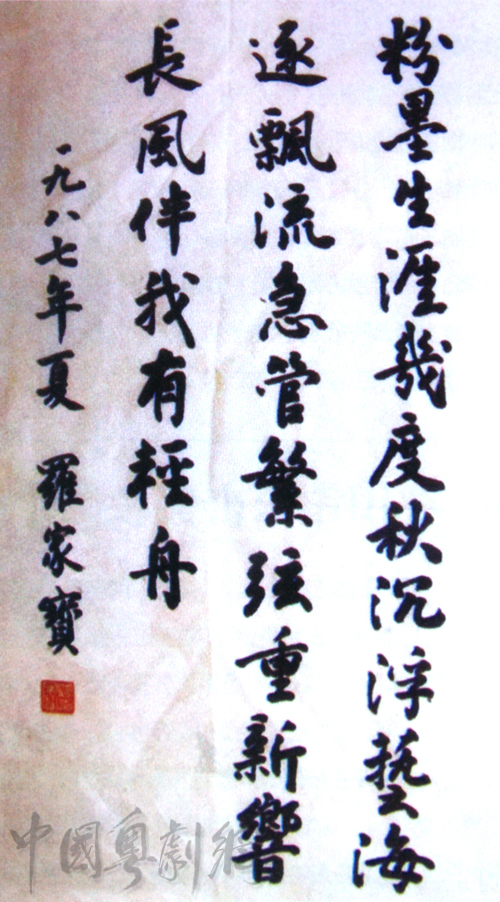 粉墨生涯幾度秋沉浮藝海
逐飄流急管繁弦重新響
長風伴我有輕舟
一九八七年夏 羅家寶
中國粵劇網